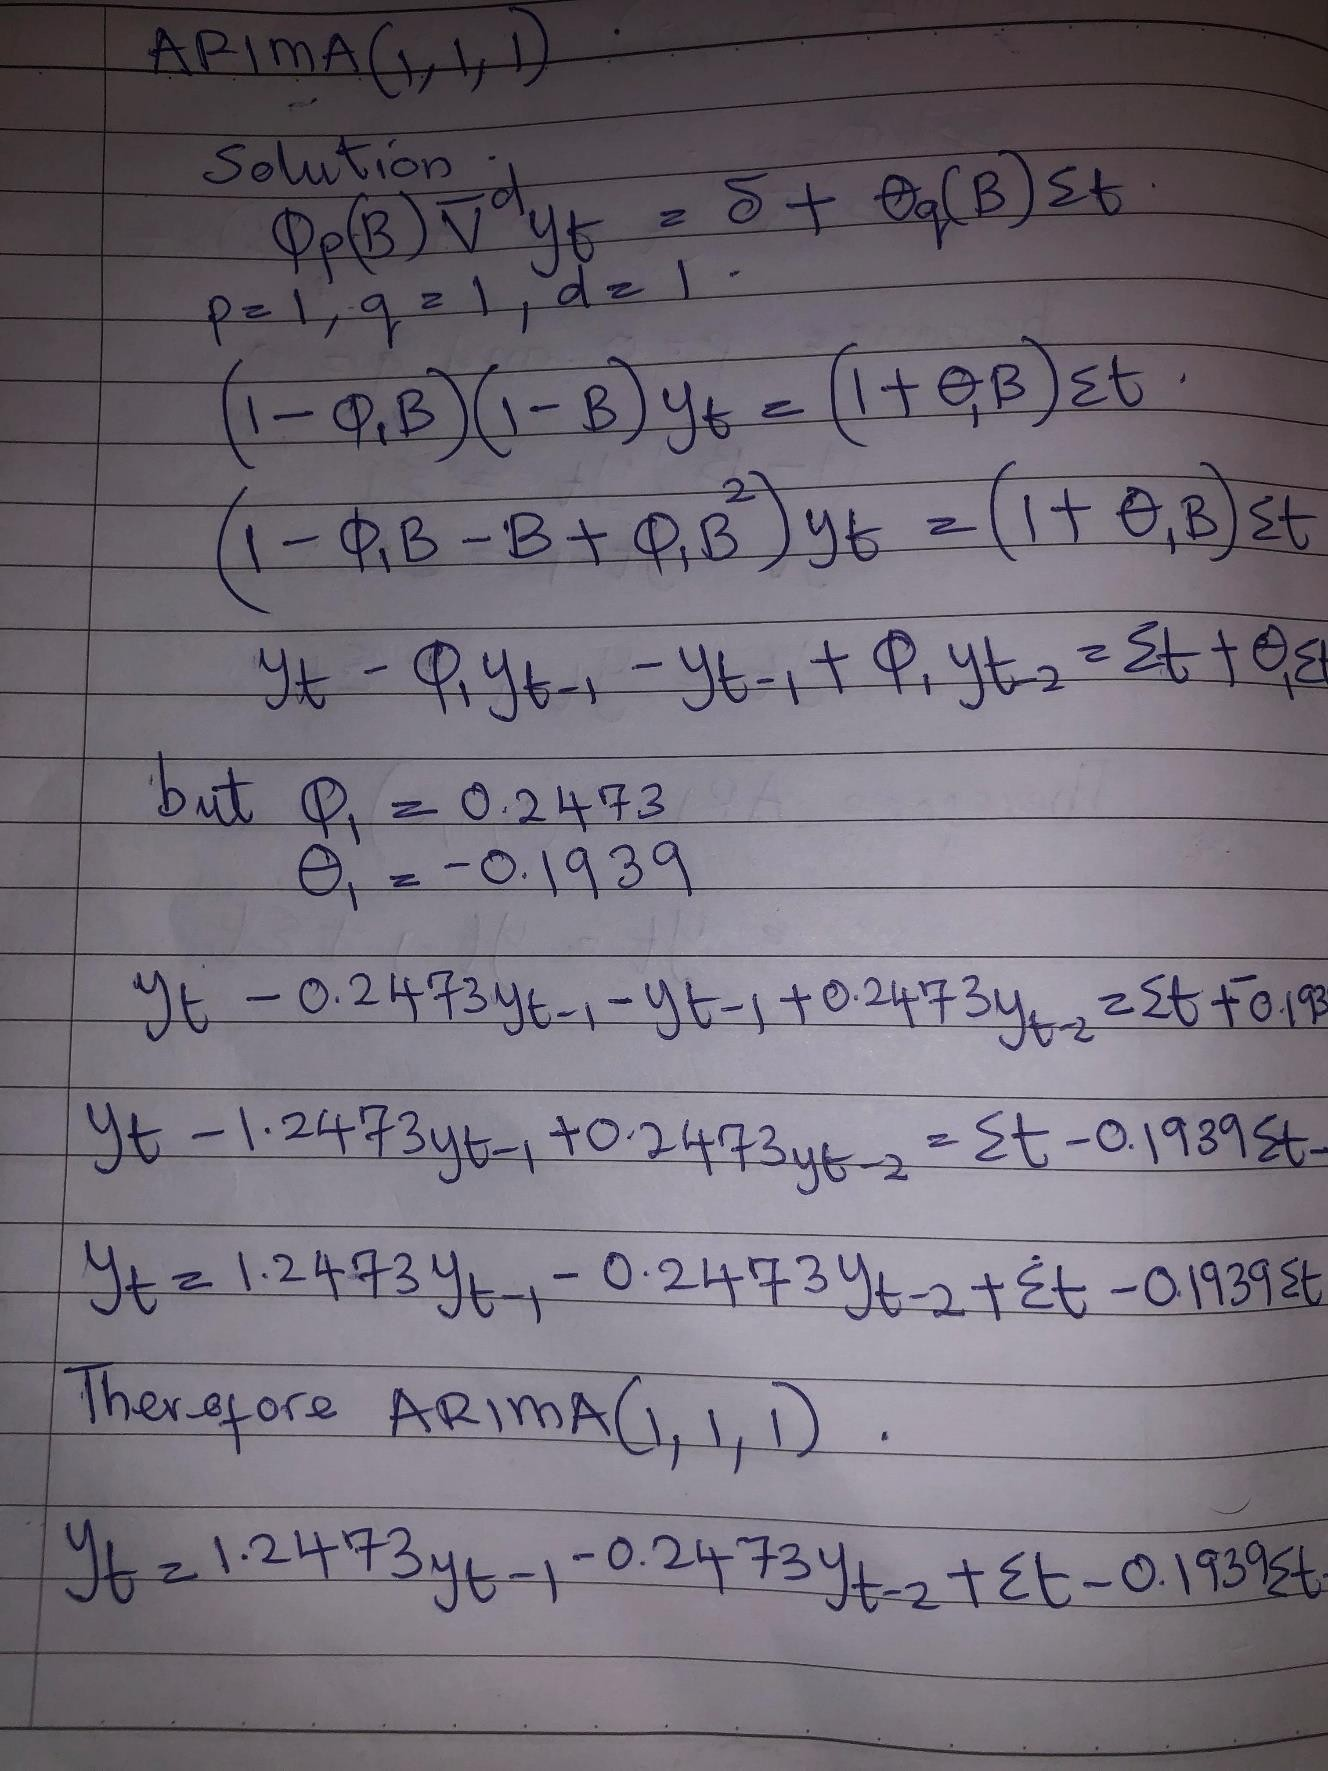 ARIMA(1,1,1)
Solution:
Φp(B)∇^d yt = δ + θq(B)Σt.
p=1, q=1, d=1.
(1-Φ₁B)(1-B)yt = (1+θ₁B)Σt.
(1-Φ₁B-B+Φ₁B²)yt = (1+θ₁B)Σt
yt - Φ₁yt-1 - yt-1 + Φ₁yt-2 = Σt + θ₁Σt
but Φ₁ = 0.2473
θ₁ = -0.1939
yt - 0.2473yt-1 - yt-1 + 0.2473yt-2 = Σt + -0.193
yt - 1.2473yt-1 + 0.2473yt-2 = Σt - 0.1939Σt-
yt = 1.2473yt-1 - 0.2473yt-2 + Σt - 0.1939Σt
Therefore ARIMA(1,1,1).
yt = 1.2473yt-1 - 0.2473yt-2 + Σt - 0.1939Σt-